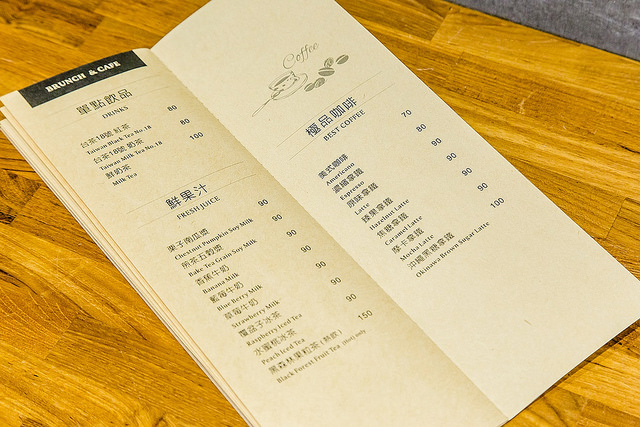 BRUNCH & CAFE
單點飲品
DRINKS
台茶18號 紅茶 80
Taiwan Black Tea No.18
台茶18號 奶茶 80
Taiwan Milk Tea No.18
鮮奶茶 100
Milk Tea
鮮果汁
FRESH JUICE
栗子南瓜漿 90
Chestnut Pumpkin Soy Milk
煎茶五穀漿 90
Bake Tea Grain Soy Milk
香蕉牛奶 90
Banana Milk
藍莓牛奶 90
Blue Berry Milk
草莓牛奶 90
Strawberry Milk
覆盆子冰茶 90
Raspberry Iced Tea
水蜜桃冰茶 90
Peach Iced Tea
黑森林果粒茶(熱飲) 150
Black Forest Fruit Tea (Hot) only
Coffee
極品咖啡
BEST COFFEE
美式咖啡 70
Americano
濃縮拿鐵 80
Espresso
原味拿鐵 90
Latte
榛果拿鐵 90
Hazelnut Latte
焦糖拿鐵 90
Caramel Latte
摩卡拿鐵 90
Mocha Latte
沖繩黑糖拿鐵 100
Okinawa Brown Sugar Latte